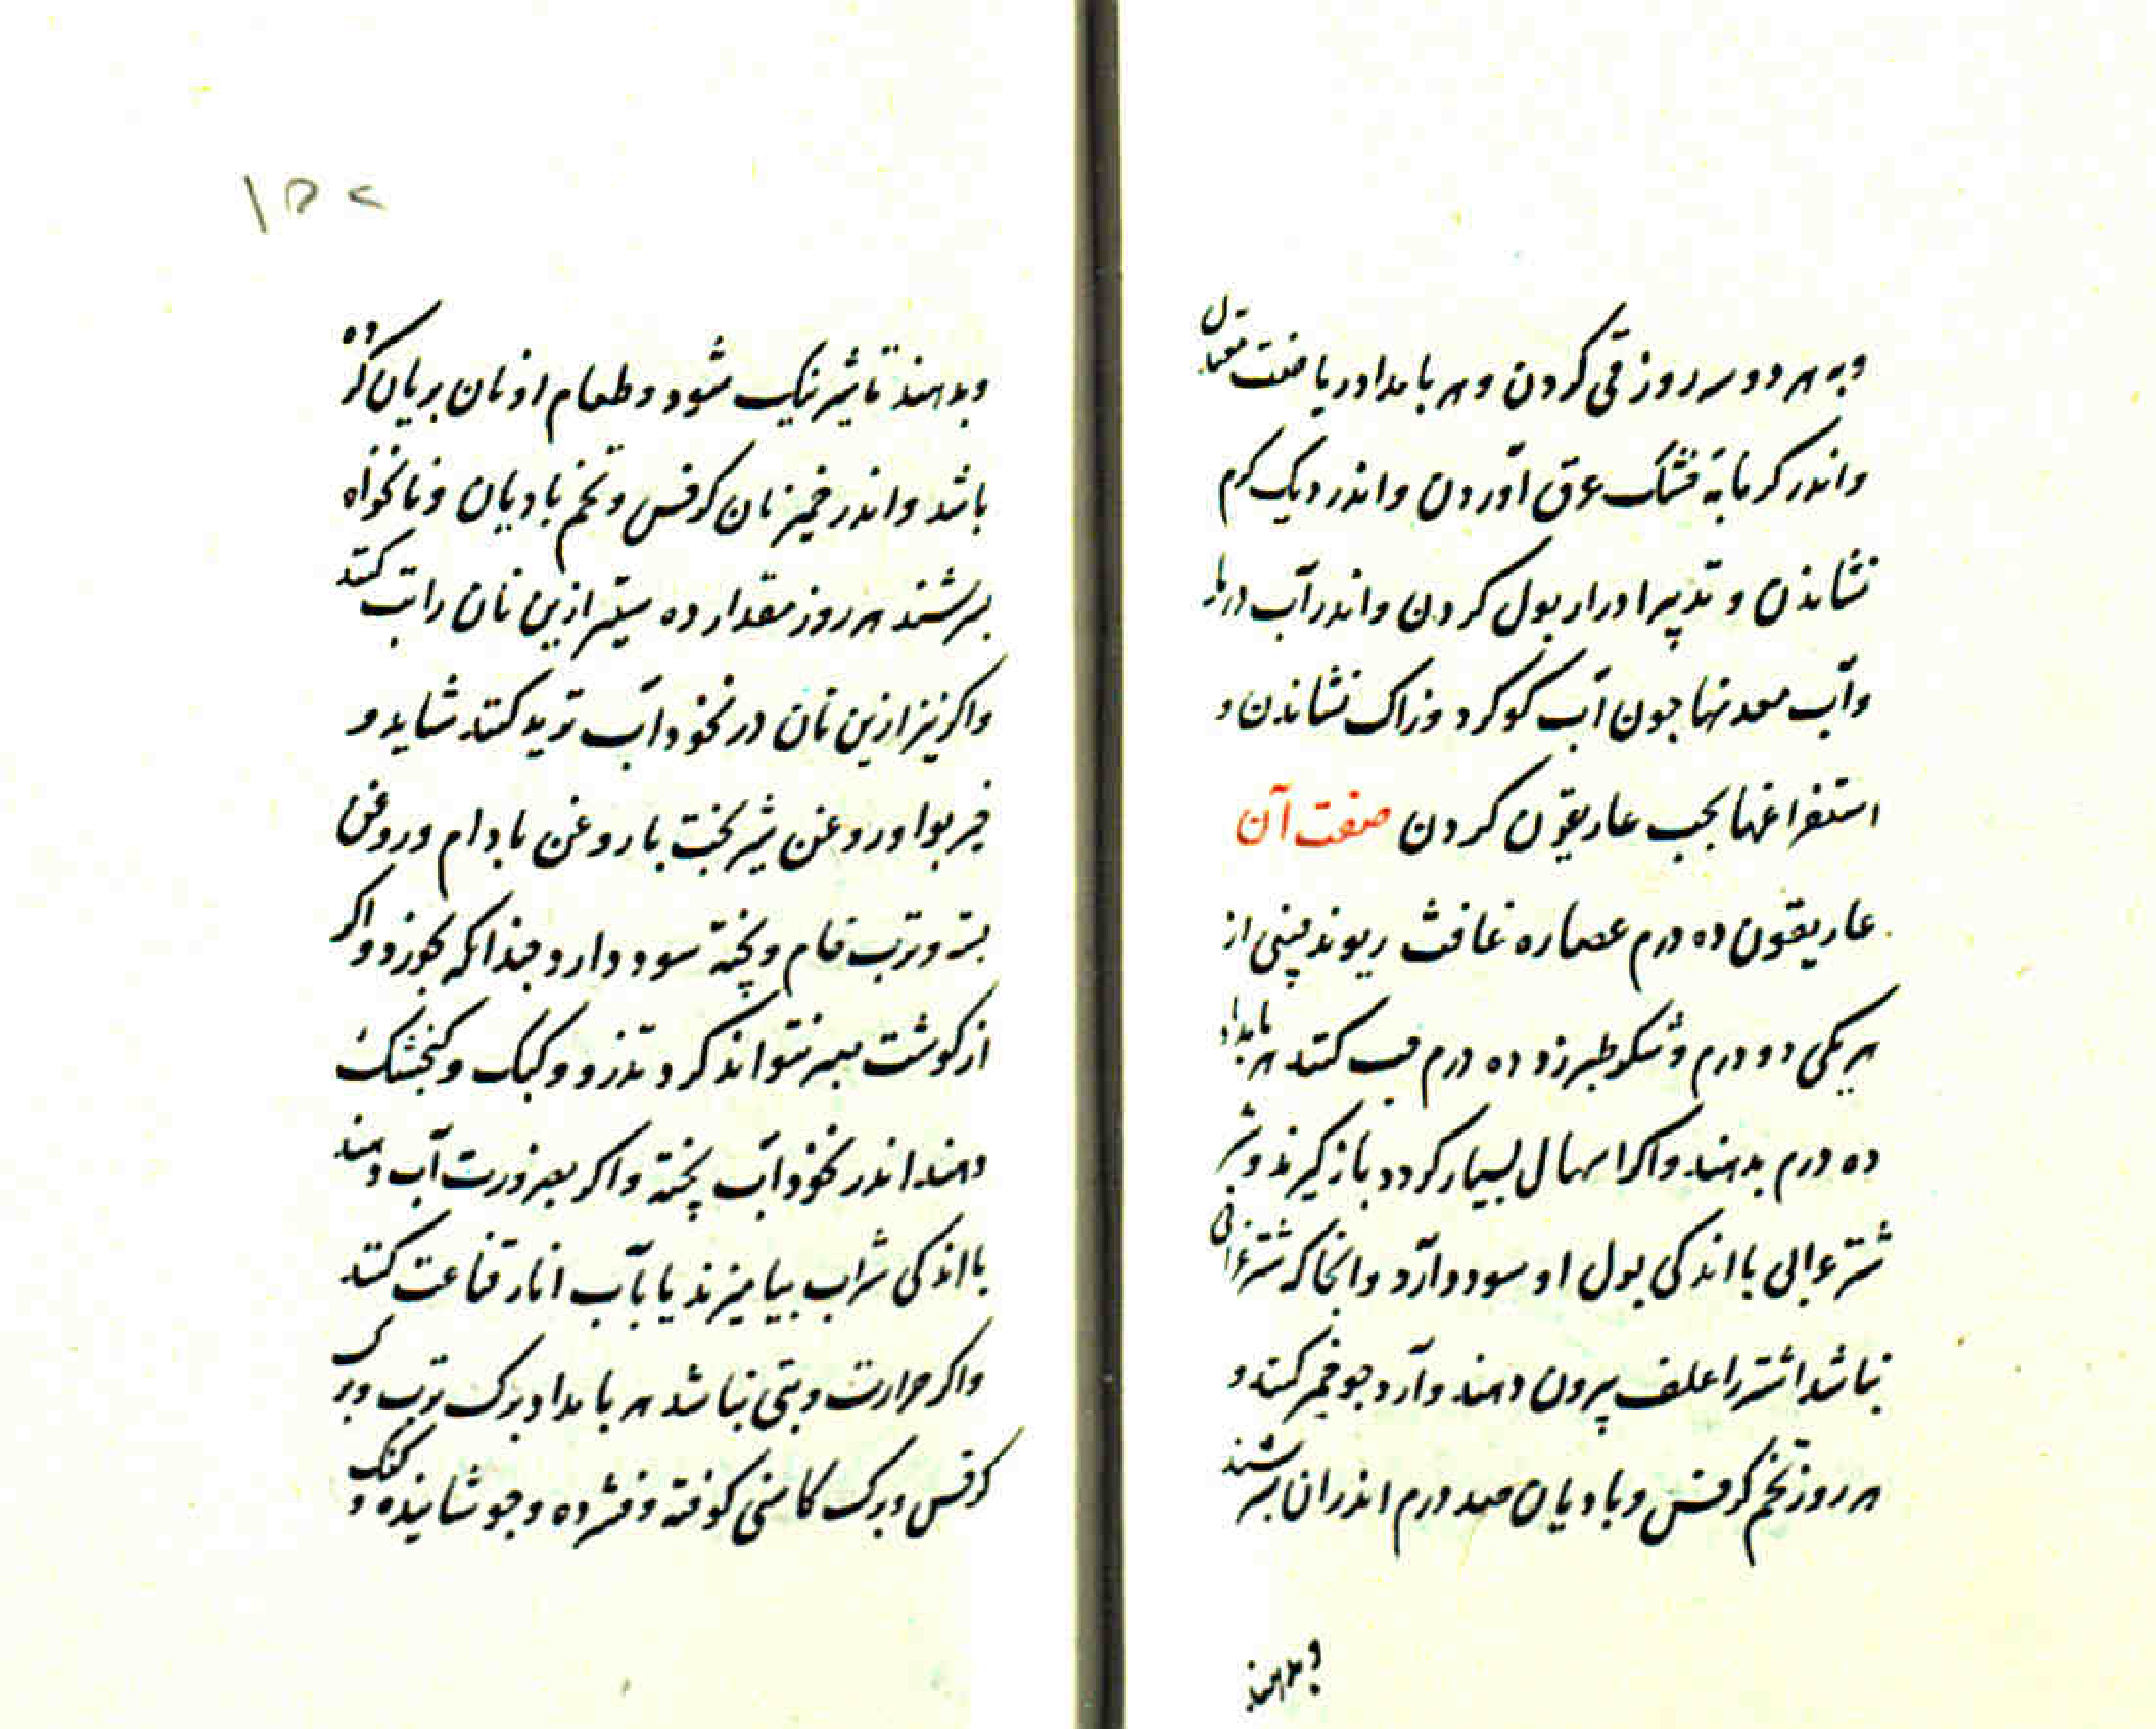 و به هر دو سه روز قی کردن و هر بامداد ریاضت معتدل
و اندر کرمابهٔ خشک عرق آوردن و اندر ریک کرم
نشاندن و تدبیر ادرار بول کردن و اندر آب دریا
و آب معدنها جون آب کوکرد و زاک نشاندن و
استفراغها بحب غاریقون کردن صفت آن
غاریقون ده درم عصاره غافث ریوند چینی از
هر یکی دو درم و شکر طبرزد ده درم حب کنند هر بامداد
ده درم بدهند و اکر اسهال بسیار کردد باز کیرند و شیر
شتر عرابی با اندکی بول او سود دارد و انجا که شتر عرابی
نباشد اشتر را علف بیرون دهند و آرد جو خمیر کنند و
هر روز تخم کرفس و بادیان صد درم اندر ان بسرشند
و بدهند
۱۵۲
و بدهند تا شیر نیک شود و طعام او نان بریان کرده
باشد و اندر خمیر نان کرفس و تخم بادیان و نانخواه
بسرشند هر روز مقدار ده سیر ازین نان راتب کنند
و اکر نیز ازین نان در نخوداب ترید کنند شاید و
خیربوا و روغن شیربخت با روغن بادام و روغن
بسته و ترب خام و بخته سود دارد جندانکه بخورد و اکر
از کوشت صبر نتواند کرد تذرو و کبک و کنجشک
دهند اندر نخوداب بخته و اکر بضرورت آب دهند
با اندکی شراب بیامیزند یا بآب انار قناعت کنند
و اکر حرارت و تبی نباشد هر بامداد برک ترب و برک
کرفس و برک کاسنی کوفته و فشرده و جوشانیده و